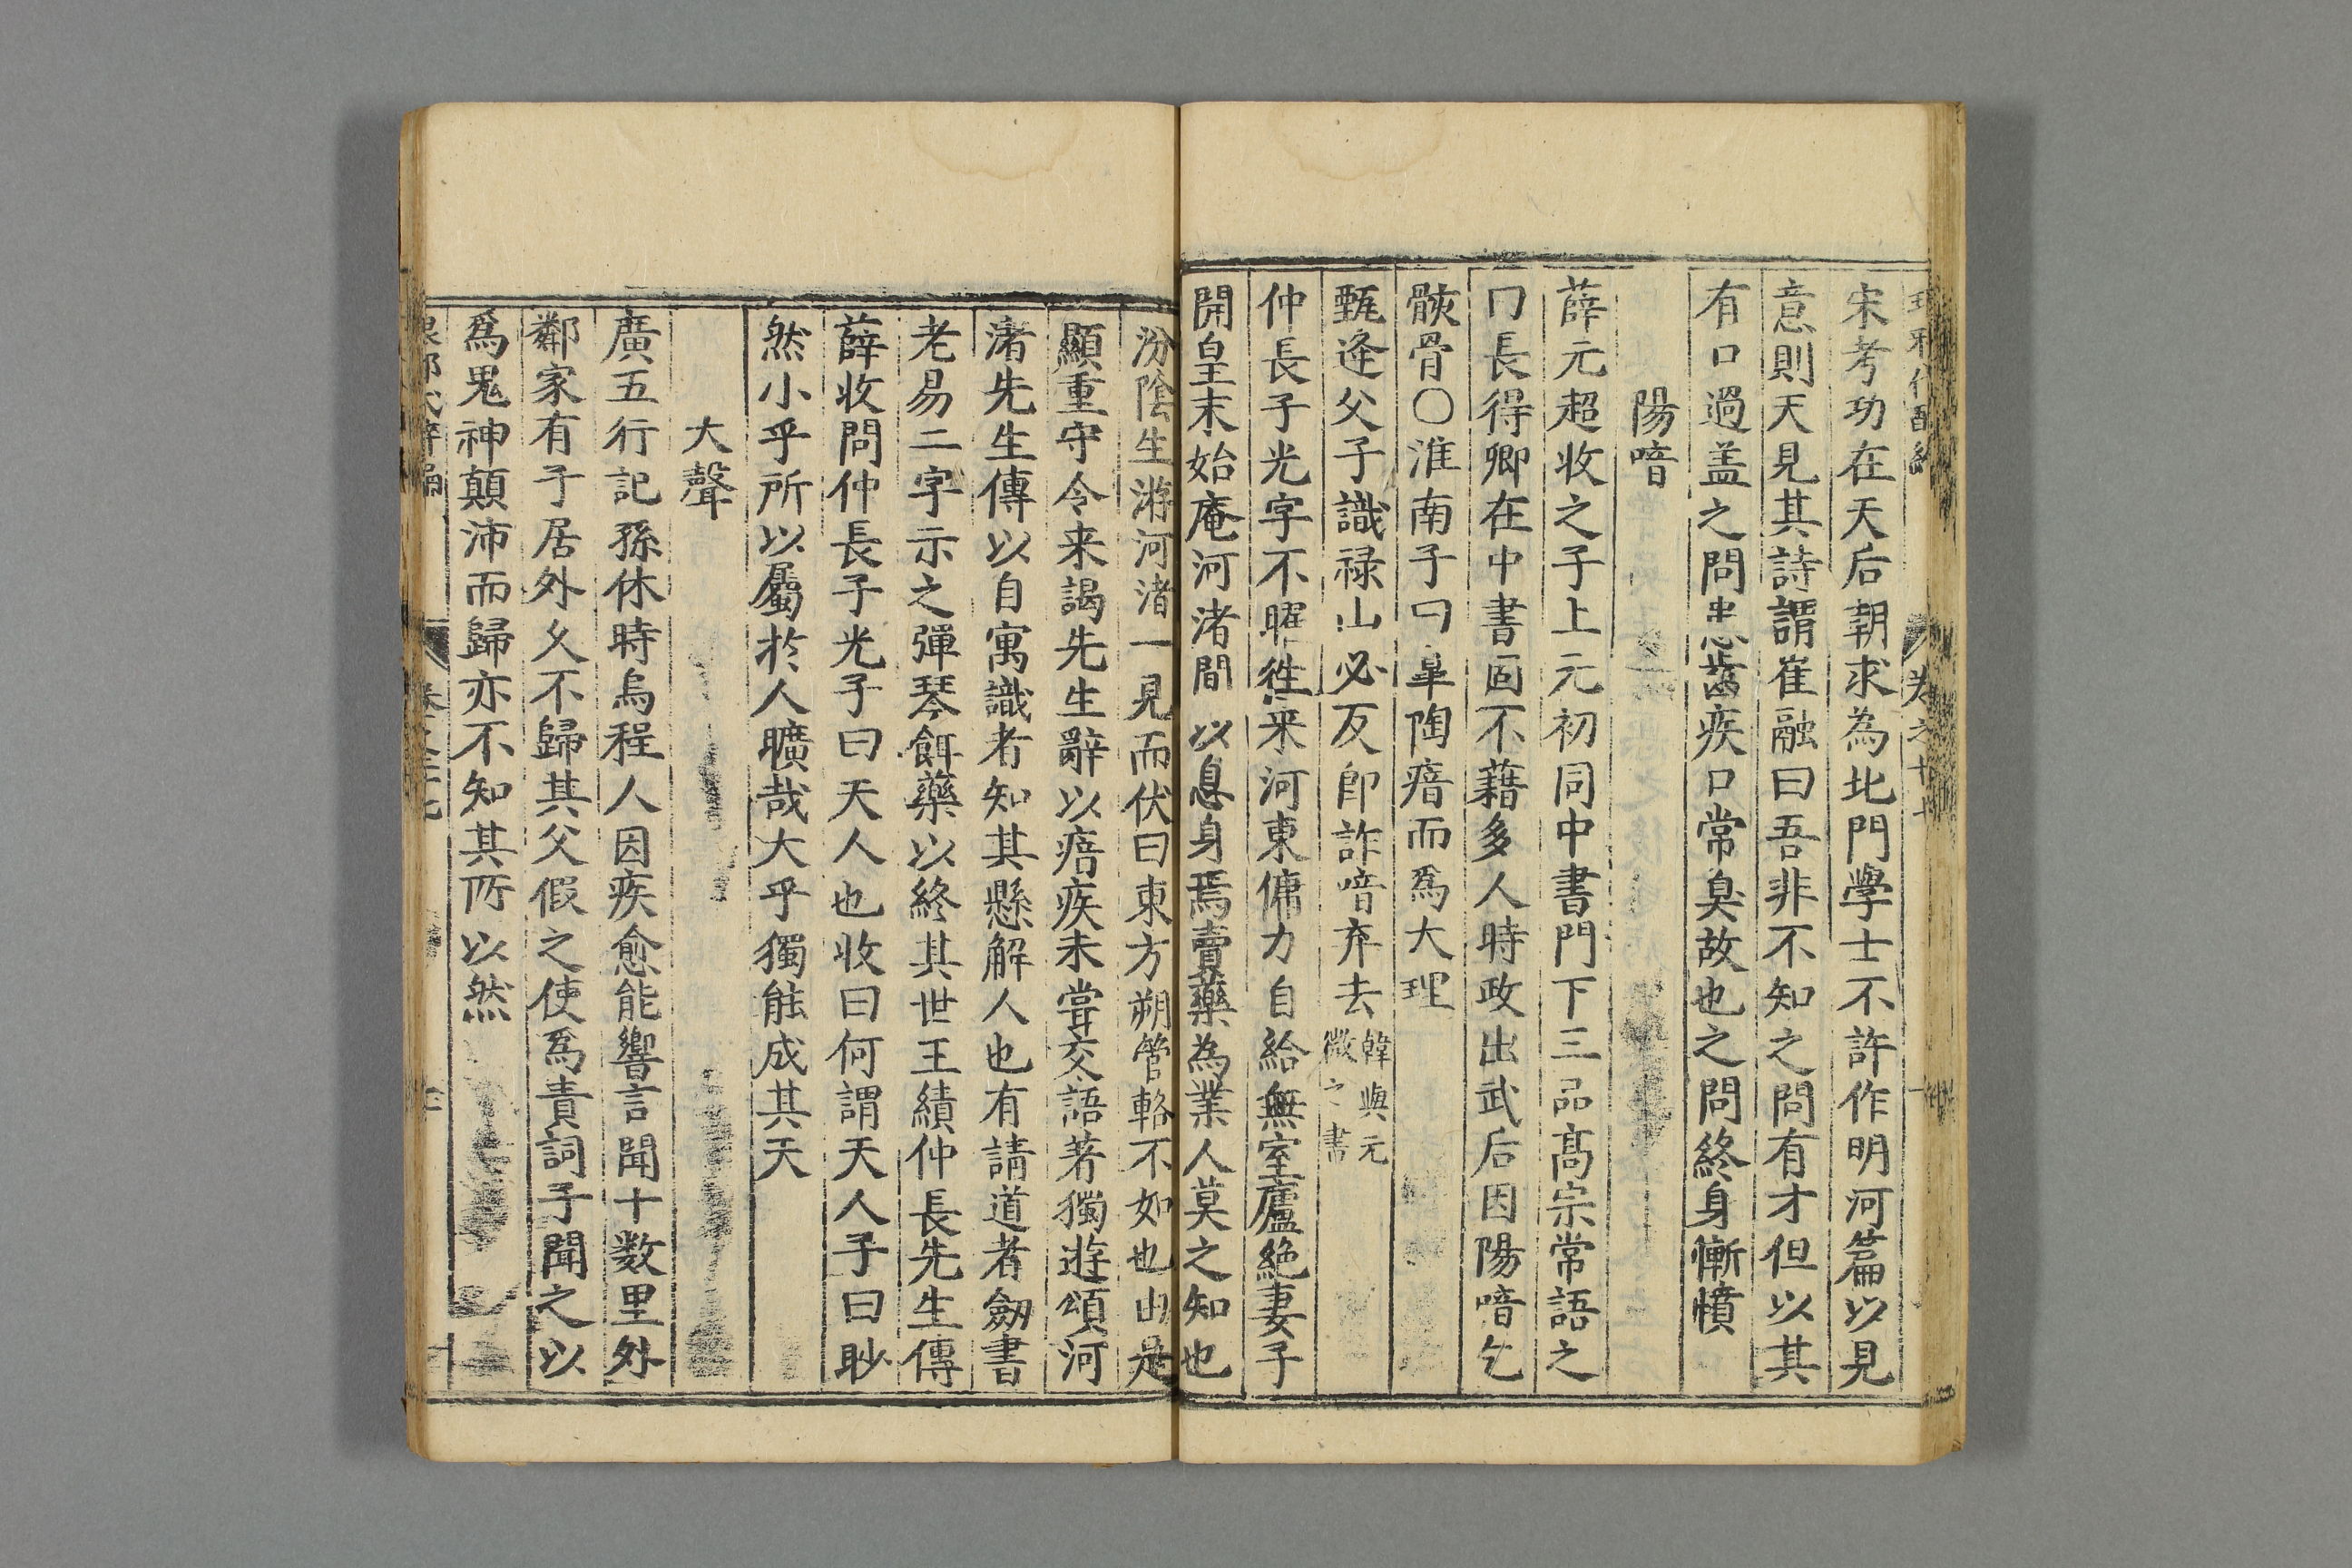 宋考功在天后朝求為北門學士不許作明河篇以見
意則天見其詩謂崔融曰吾非不知之問有才但以其
有口過盖之問患齒疾口常臭故也之問終身慚憤
陽喑
薛元超收之子上元初同中書門下三品髙宗常語之
曰長得卿在中書固不藉多人時政出武后因陽喑乞
骸骨〇淮南子曰皐陶瘖而爲大理
甄逢父子識禄山必反即詐喑弃去
韓與元
微之書
仲長子光字不曜徃来河東傭力自給無室廬絶妻子
開皇末始庵河渚間以息身焉賣藥為業人莫之知也
汾陰生游河渚一見而伏曰東方朔管輅不如也由是
顯重守令来謁先生辭以瘖疾未嘗交語著獨遊頌河
渚先生傳以自寓識者知其懸解人也有請道者劒書
老易二字示之彈琴餌藥以終其世王績仲長先生傳
薛收問仲長子光子曰天人也收曰何謂天人子曰眇
然小乎所以屬於人曠哉大乎獨能成其天
大聲
廣五行記孫休時烏程人因疾愈能響言聞十数里外
鄰家有子居外久不歸其父假之使爲責詞子聞之以
爲鬼神顛沛而歸亦不知其所以然